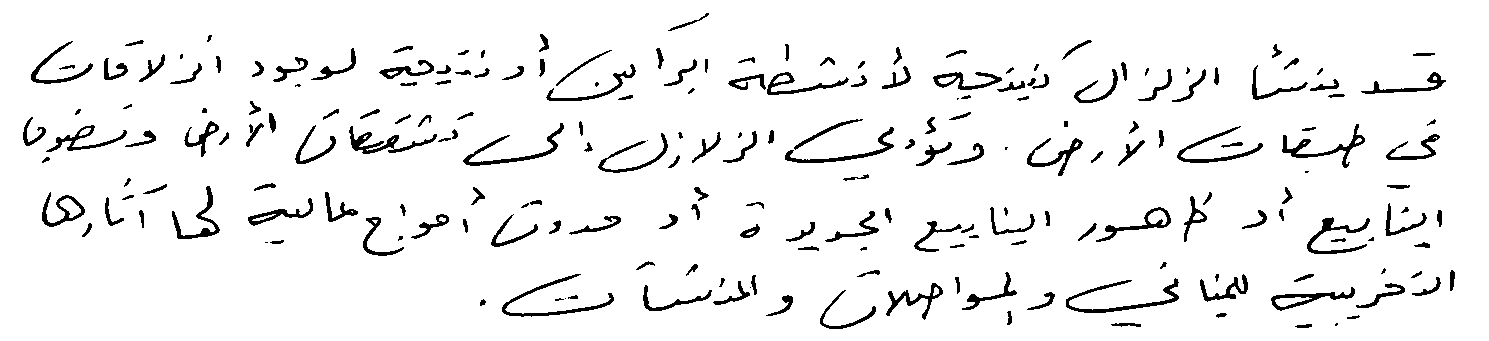 قد ينشأ الزلزال كنتيجة لأنشطة البراكين أو نتيجة لوجود انزلاقات
في طبقات الأرض. وتؤدي الزلازل إلى تشققات الأرض ونضوب
الينابيع أو ظهور الينابيع الجديدة أو حدوث أمواج عالية لها آثارها
التخريبية للمباني والمواصلات والمنشآت.